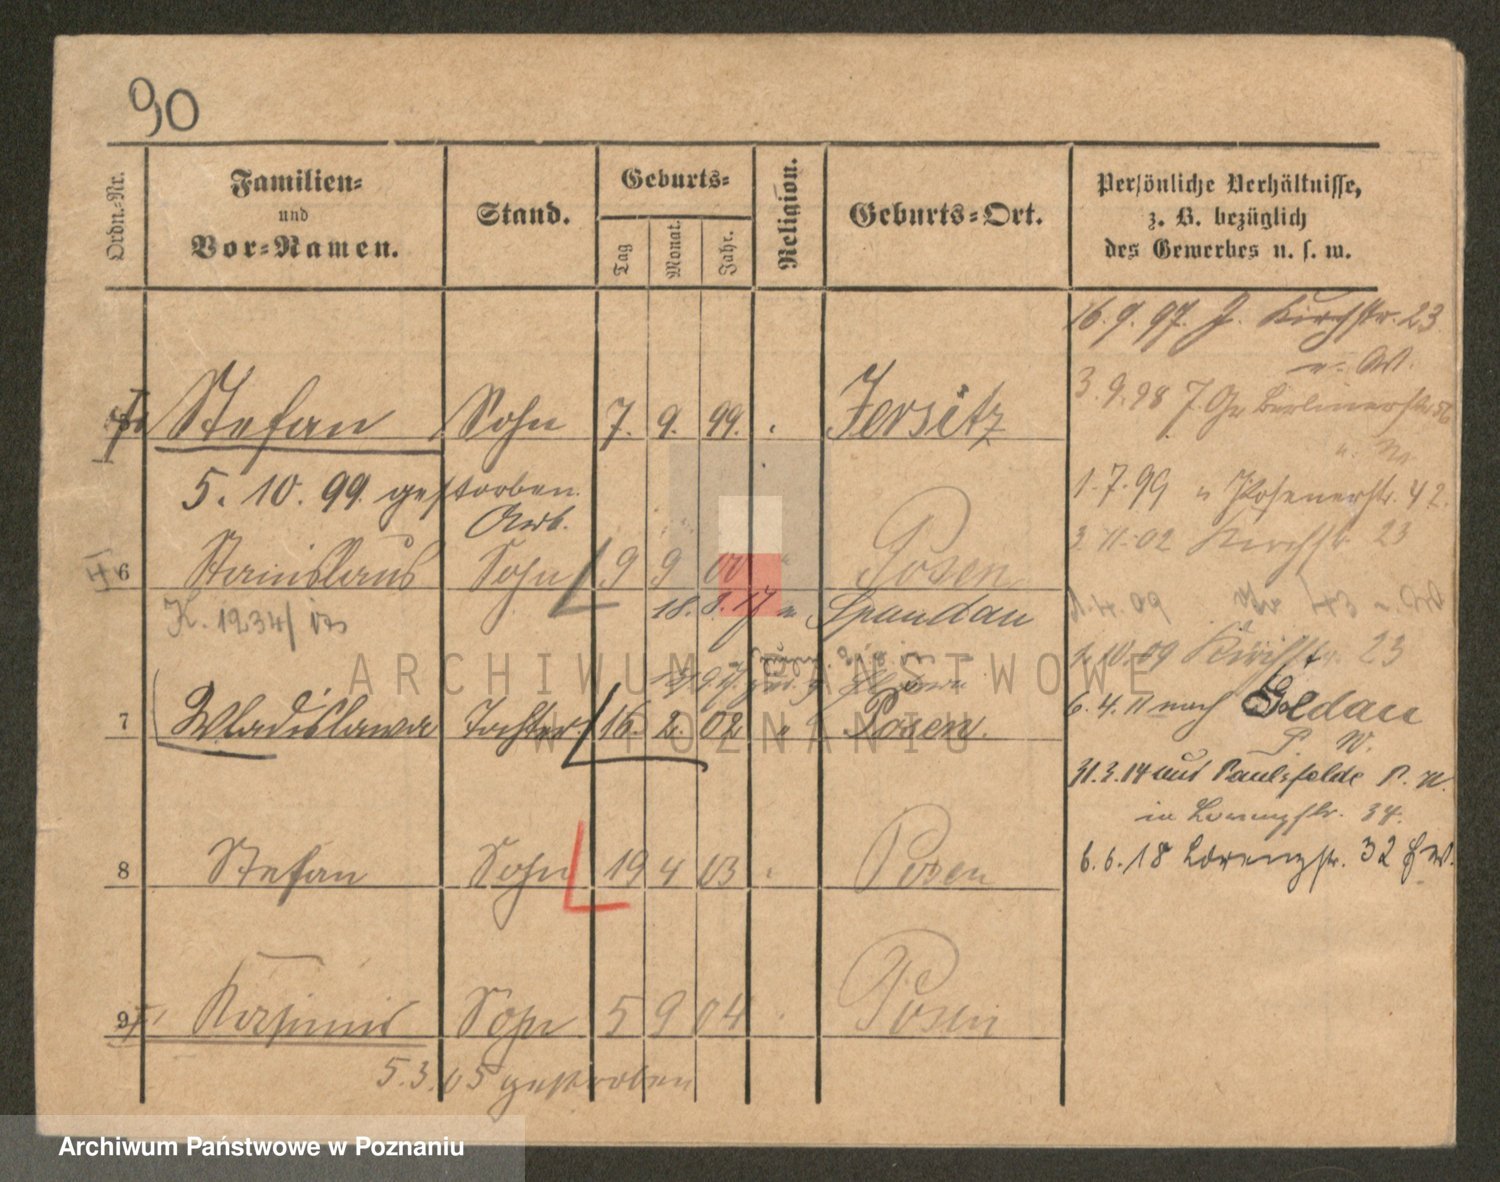 90
Ordn.-Nr.
Familien-
und
Vor-Namen.
Stand.
Geburts-
Tag
Monat.
Jahr.
Religion.
Geburts-Ort.
Persönliche Verhältnisse,
z. B. bezüglich
des Gewerbes u. s. w.
16. 9. 97. J. Kirchstr. 23
3. 9. 98 J. Gr Berlinerstr. 56
Stefan Sohn 7. 9. 99. Jersitz
1. 7. 99 Posenerstr. 42.
5. 10. 99. gestorben.
Arb.
3 11. 02 Kirchstr. 23
6 Stanislaus Sohn 9 9 00 " Posen
1. 4. 09
K. 1234/
18. 8. 17 n Spandau
1. 10. 09 Kirchstr. 23
6. 4. 11 nach Soldau
P. W.
7 Wladislawa Tochter 16. 2. 02 " Posen.
31. 3. 14 aus Paulsfelde P. W.
in Lorenzstr. 34.
6. 6. 18 Lorenzstr. 32
8 Stefan Sohn 19 4 03 Posen
9 Kasimir Sohn 5 9 04 Posen
5. 3. 05 gestorben
ARCHIWUM PAŃSTWOWE
W POZNANIU
Archiwum Państwowe w Poznaniu